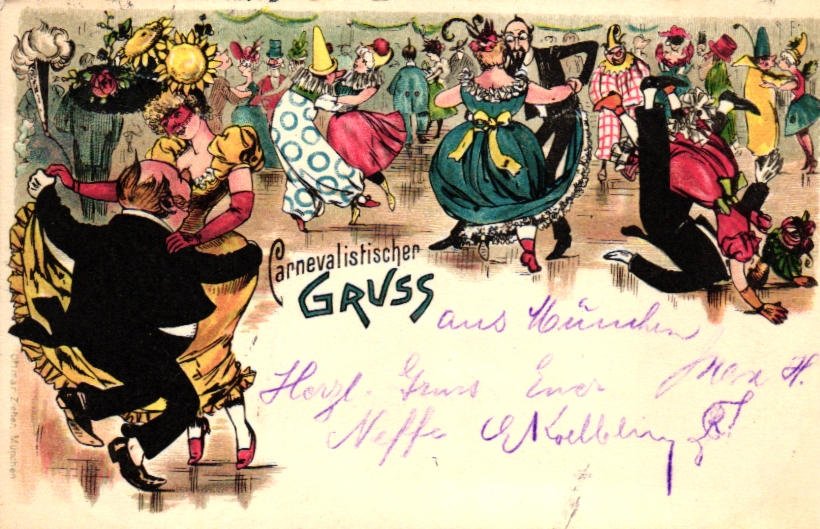 Carnevalistischer
GRUSS
aus München
Herzl. Gruss Euer
Neffe
Ottmar Zieher, München